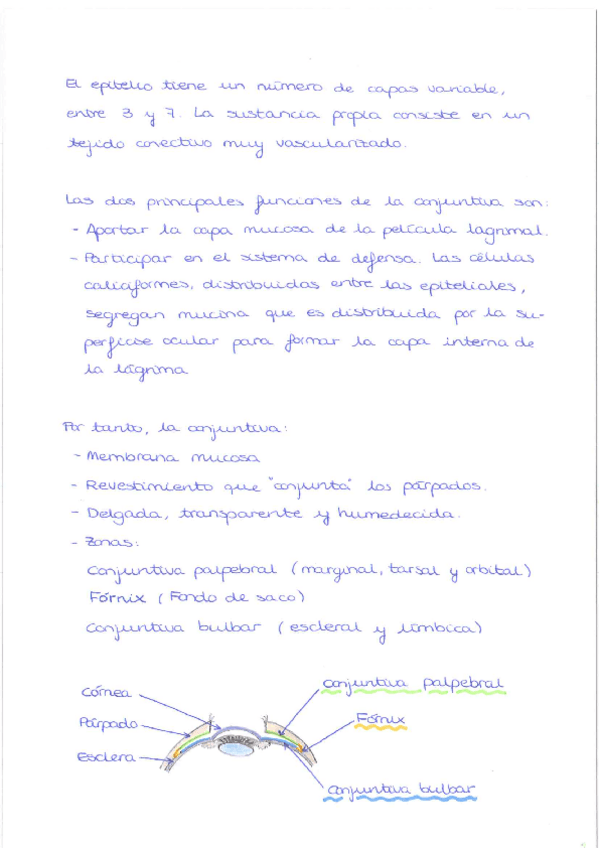 El epitelio tiene un número de capas variable,
entre 3 y 7. La sustancia propia consiste en un
tejido conectivo muy vascularizado.
Las dos principales funciones de la conjuntiva son:
- Aportar la capa mucosa de la película lagrimal.
- Participar en el sistema de defensa. Las células
caliciformes, distribuidas entre las epiteliales,
segregan mucina que es distribuida por la su-
perficie ocular para formar la capa interna de
la lágrima
Por tanto, la conjuntiva:
- Membrana mucosa
- Revestimiento que "conjunta" los párpados.
- Delgada, transparente y humedecida.
- Zonas:
Conjuntiva palpebral (marginal, tarsal y orbital)
Fórnix (Fondo de saco)
Conjuntiva bulbar (escleral y límbica)
Córnea
Párpado
Esclera
Conjuntiva palpebral
Fórnix
Conjuntiva bulbar